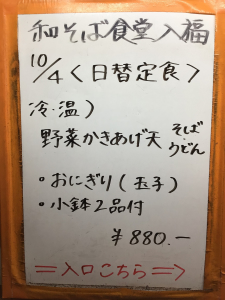 和そば食堂入福
10/4〈日替定食〉
冷・温)
野菜かきあげ天 そば・うどん
・おにぎり(玉子)
・小鉢2品付
¥880.-
=入口こちら⇒